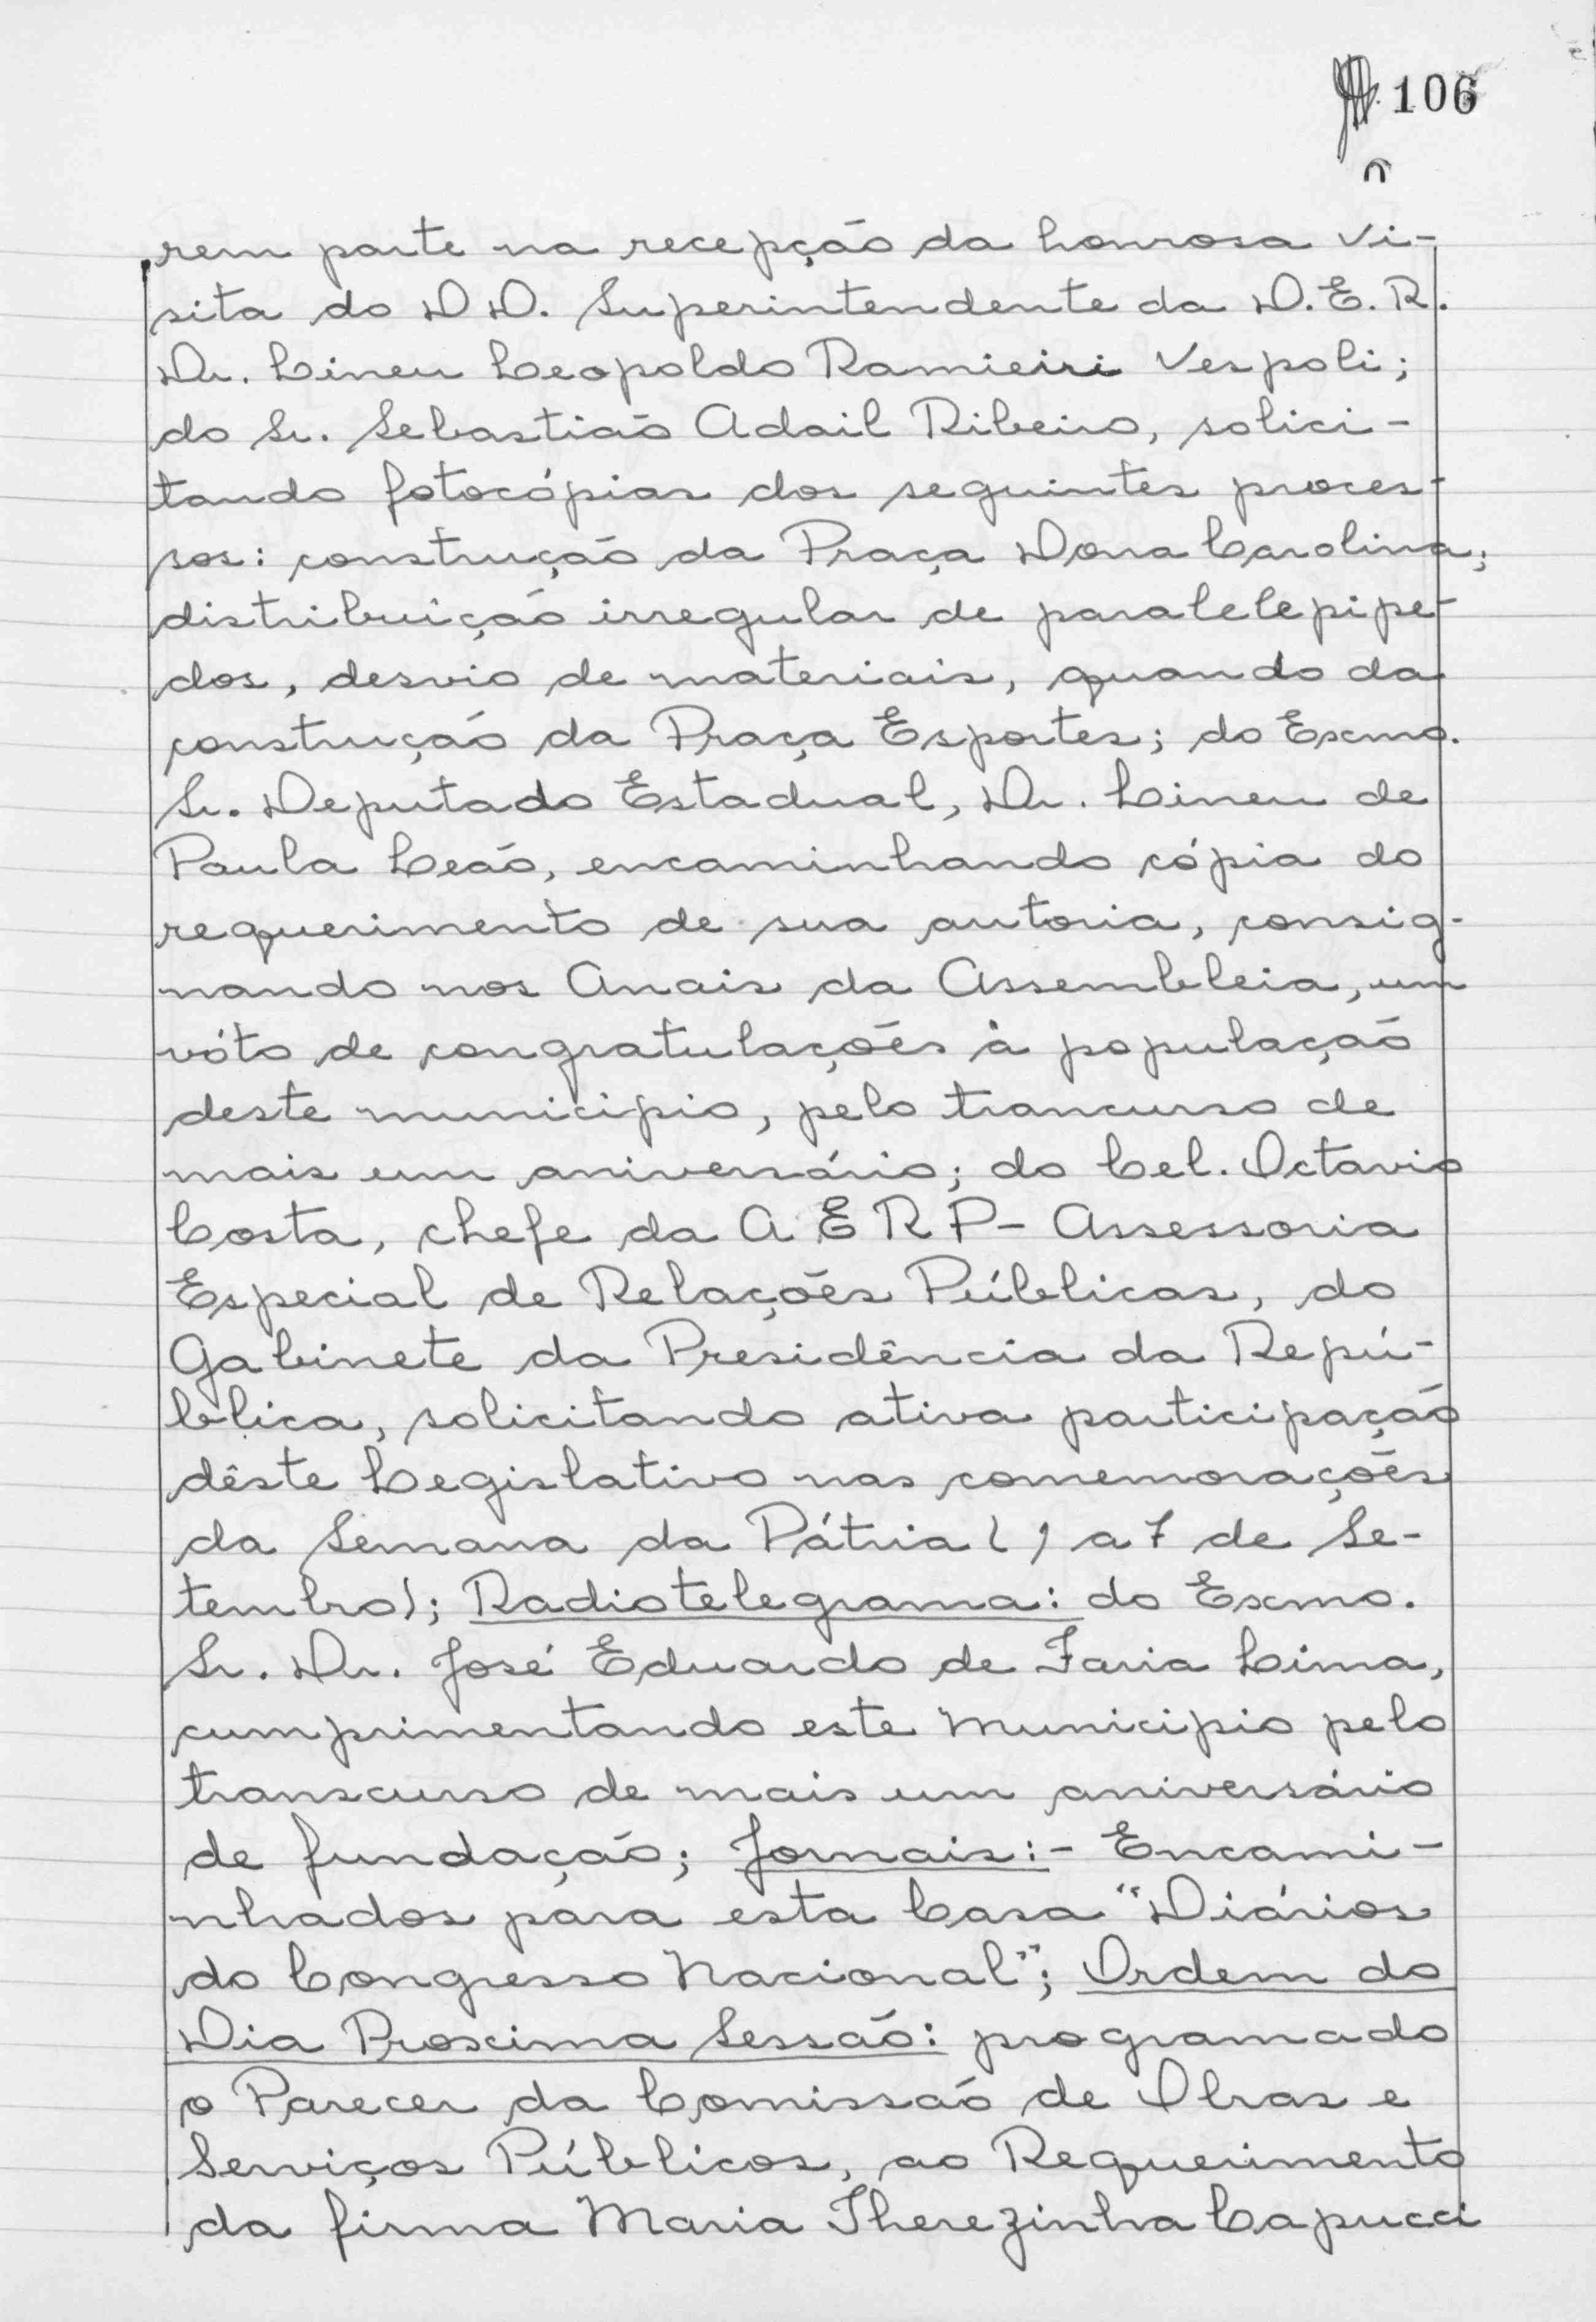 106
rem parte na recepção da honrosa vi-
sita do D D. Superintendente da D.E.R.
Dr. Lineu Leopoldo Ramieiri Vespoli;
do Sr. Sebastião Adail Ribeiro, solici-
tando fotocópias dos seguintes proces-
sos: construção da Praça Dona Carolina;
distribuição irregular de paralelepipe-
dos, desvio de materiais, quando da
construção da Praça Esportes; do Exmo.
Sr. Deputado Estadual, Dr. Lineu de
Paula Leão, encaminhando cópia do
requerimento de sua autoria, consig-
nando nos Anais da Assembleia, um
vóto de congratulações à população
deste municipio, pelo trancurso de
mais um aniversário; do Cel. Octavio
Costa, chefe da A E R P - Assessoria
Especial de Relações Públicas, do
Gabinete da Presidência da Repú-
blica, solicitando ativa participação
dêste Legislativo nas comemorações
da Semana da Pátria (1 a 7 de Se-
tembro); Radiotelegrama: do Exmo.
Sr. Dr. José Eduardo de Faria Lima,
cumprimentando este Municipio pelo
transcurso de mais um aniversário
de fundação; Jornais:- Encami-
nhados para esta Casa "Diários
do Congresso Nacional"; Ordem do
Dia Proxima Sessão: programado
o Parecer da Comissão de Obras e
Serviços Públicos, ao Requerimento
da firma Maria Therezinha Capucci